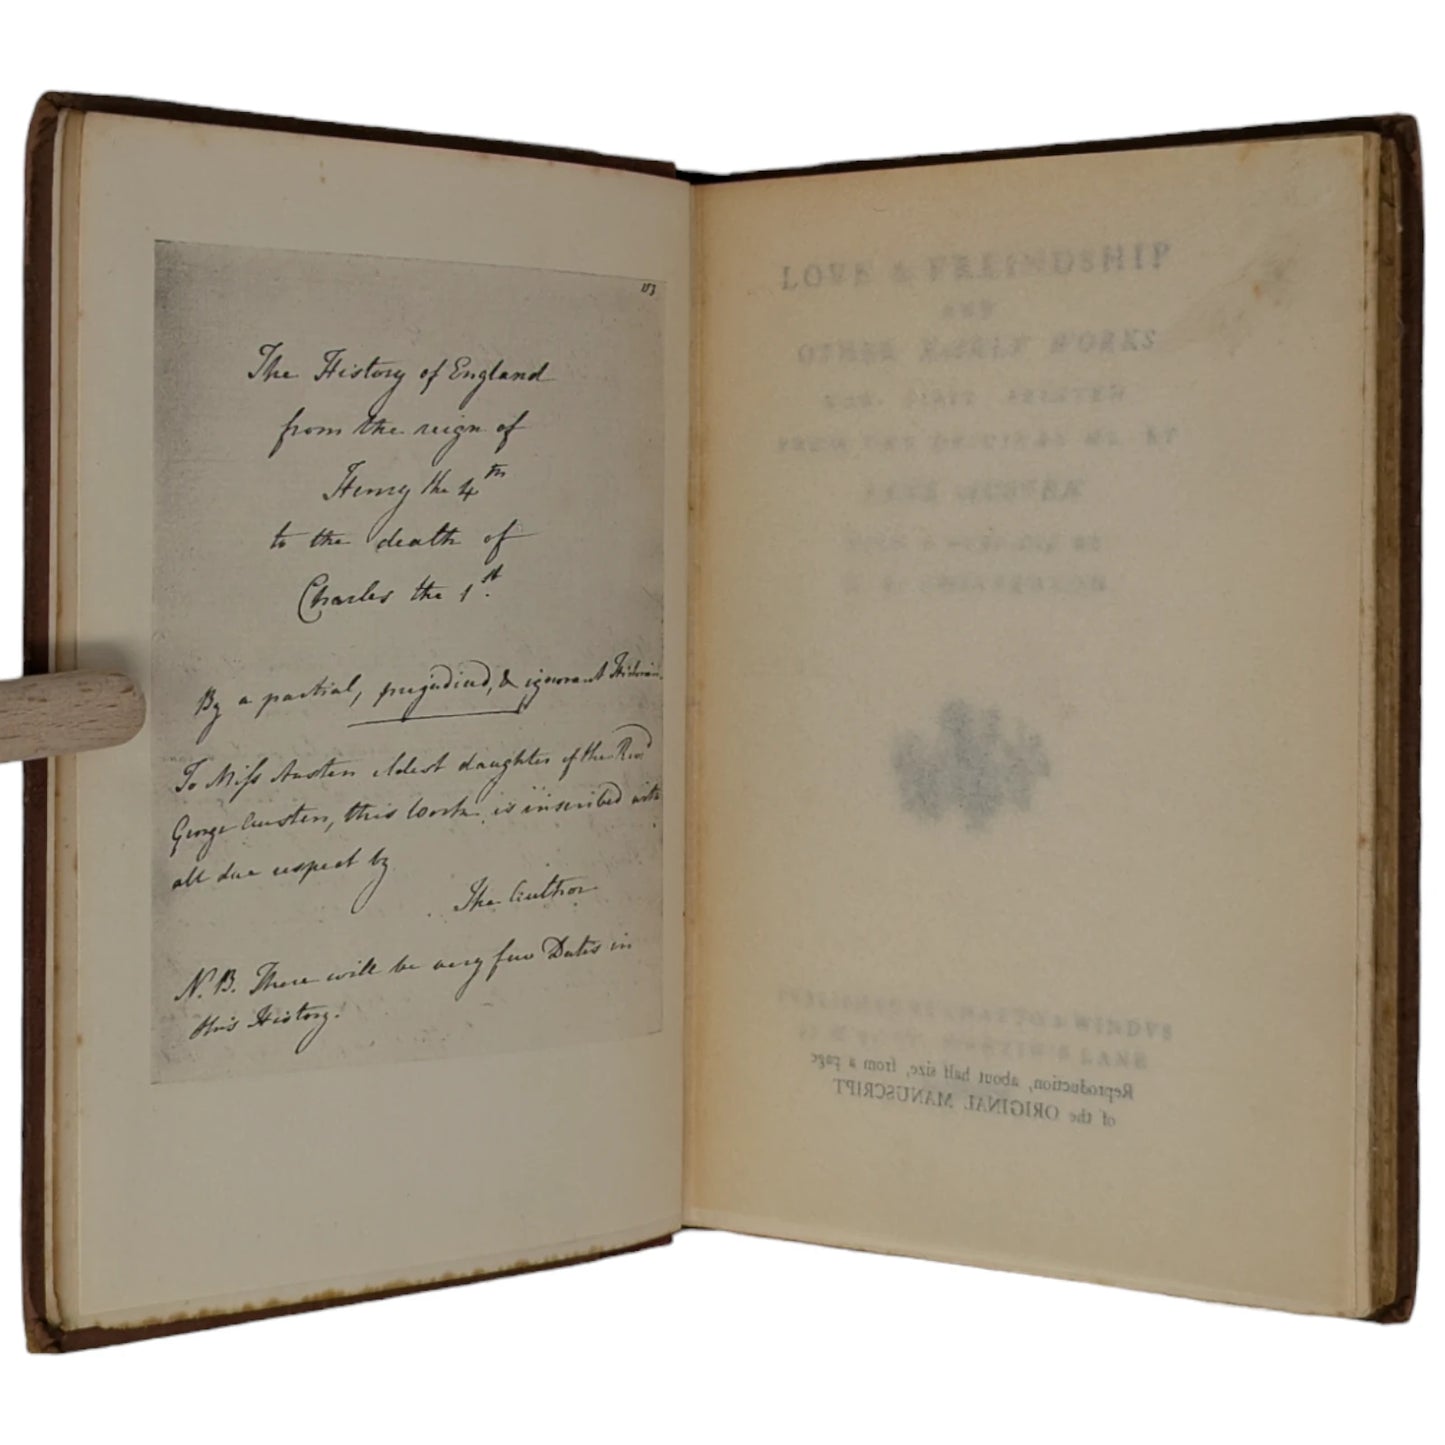 153
The History of England
from the reign of
Henry the 4th
to the death of
Charles the 1st.
By a partial, prejudiced, & ignorant Historian.
To Miss Austen eldest daughter of the Revd
George Austen, this Work is inscribed with
all due respect by
The Author
N.B. There will be very few Dates in
this History.
LOVE & FREINDSHIP
AND
OTHER EARLY WORKS
NOW FIRST PRINTED
FROM THE ORIGINAL MS. BY
JANE AUSTEN
WITH A PREFACE BY
G. K. CHESTERTON
PUBLISHED BY CHATTO & WINDVS
MARTIN'S LANE
Reproduction, about half size, from a page
of the ORIGINAL MANUSCRIPT